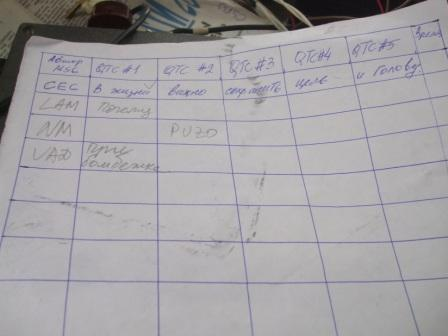 Автор MSG QTC #1 QTC #2 QTC #3 QTC #4 QTC #5 Время
CEC В жизни важно сохранить цель и голову
LAM Почему
NM PUZO
VAD При
бомбежке